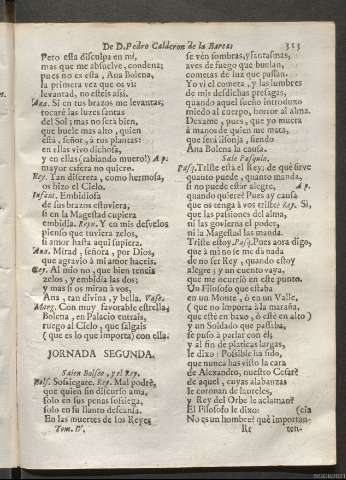 De D. Pedro Calderon de la Barca. 313
Pero esta disculpa en mi,
mas que me absuelve, condena;
pues no es esta, Ana Bolena,
la primera vez que os vi:
levantad, no esteis assi.
Ana. Si en tus brazos me levantas,
tocarè las luzes santas
del Sol; mas no serà bien,
que buele mas alto, quien
està, señor, à tus plantas:
en ellas vivo dichosa,
y en ellas (rabiando muero!) Ap.
mayor esfera no quiero.
Rey. Tan discreta, como hermosa,
os hizo el Cielo.
Infant. Embidiosa
de sus brazos estuviera,
si en la Magestad cupiera
embidia. Reyn. Y en mis desvelos
pienso que tuviera zelos,
si amor hasta aqui supiera.
Ana. Mirad, señora, por Dios,
que agravio à mi amor haceis.
Rey. Al mio no, que bien teneis
zelos, y embidia las dos;
y mas si os miran à vos,
Ana, tan divina, y bella. Vase.
Marg. Con muy favorable estrella,
Bolena, en Palacio entrais,
ruego al Cielo, que salgais
(que es lo que importa) con ella.
JORNADA SEGUNDA.
Salen Bolseo, y el Rey.
Bols. Sossiegate. Rey. Mal podrè,
que quien sin discurso ama,
solo en sus penas sossiega,
solo en su llanto descansa.
En las muertes de los Reyes
Tom. IV.
se vèn sombras, y fantasmas,
aves de fuego que buelan,
cometas de luz que passan.
Yo vi el cometa, y las lumbres
de mis desdichas presagas,
quando aquel sueño introduxo
miedo al cuerpo, horror al alma.
Dexame, pues, que yo muera
à manos de quien me mata,
que serà lisonja, siendo
Ana Bolena la causa.
Sale Pasquin.
Pasq. Triste està el Rey; de què sirve
quanto puede, quanto manda,
si no puede estàr alegre, Ap.
quando quiere? Pues ay causa
que os tenga à vos triste? Rey. Si,
que las passiones del alma,
ni las govierna el poder,
ni la Magestad las manda.
Triste estoy. Pasq. Pues aora digo,
que à mi no se me dà nada
de no ser Rey, quando estoy
alegre; y un cuento vaya,
que me ocurriò en este punto.
Un Filosofo que estaba
en un Monte, ò en un Valle,
(que no importa à la maraña,
que estè en baxo, ò estè en alto)
y un Soldado que passaba,
se puso à parlar con èl;
y al fin de platicas largas,
le dixo: Possible ha sido,
que nunca has visto la cara
de Alexandro, nuestro Cesar?
de aquel, cuyas alabanzas
le coronan de laureles,
y Rey del Orbe le aclaman?
El Filosofo le dixo: (cia
No es hombre? què importan-
Rr ten-